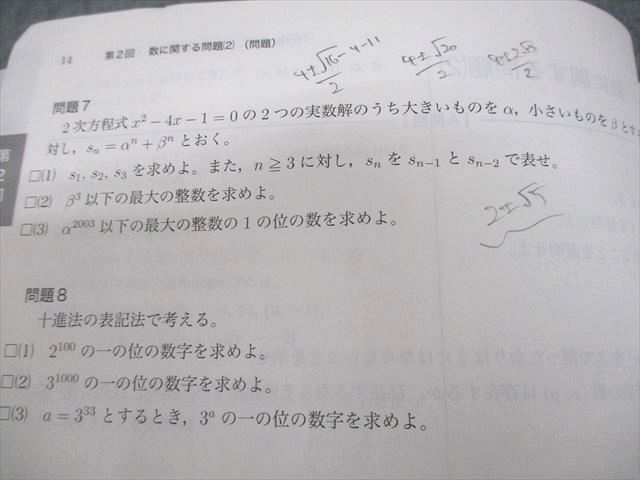 14 第2回 数に関する問題(2) (問題)
4±√16-4-11/2 4±√20/2 4±2√5/2
問題7
2次方程式 x² − 4x − 1 = 0 の2つの実数解のうち大きいものを α, 小さいものを β と
対し, sₙ = αⁿ + βⁿ とおく。
□(1) s₁, s₂, s₃ を求めよ。また, n ≧ 3 に対し, sₙ を sₙ₋₁ と sₙ₋₂ で表せ。
□(2) β³ 以下の最大の整数を求めよ。
□(3) α²⁰⁰³ 以下の最大の整数の1の位の数を求めよ。
2±√5
第2
問題8
十進法の表記法で考える。
□(1) 2¹⁰⁰ の一の位の数字を求めよ。
□(2) 3¹⁰⁰⁰ の一の位の数字を求めよ。
□(3) a = 3³³ とするとき, 3ᵃ の一の位の数字を求めよ。